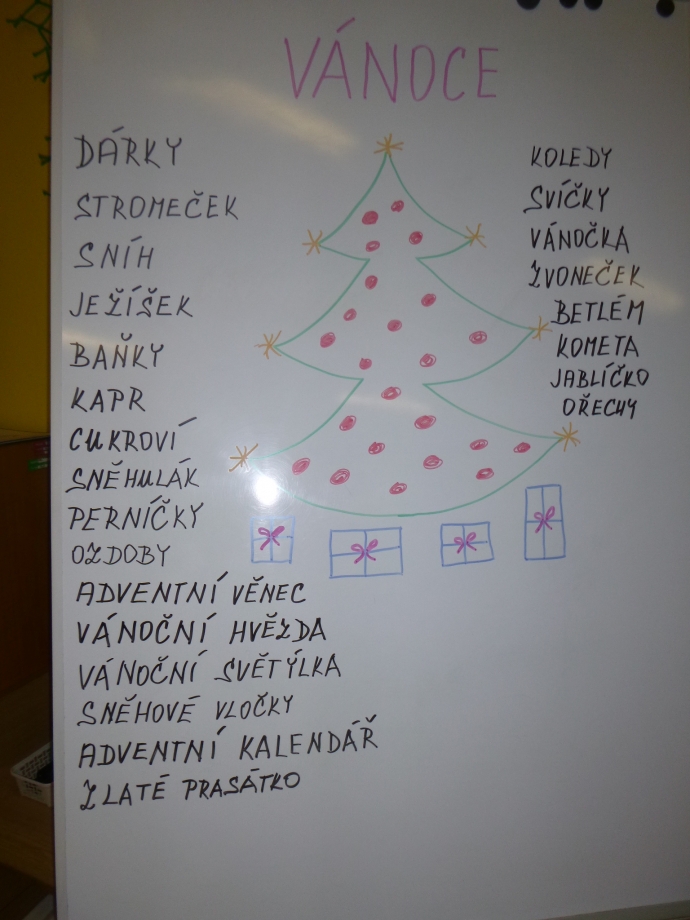 VÁNOCE
DÁRKY
STROMEČEK
SNÍH
JEŽÍŠEK
BAŇKY
KAPR
CUKROVÍ
SNĚHULÁK
PERNÍČKY
OZDOBY
ADVENTNÍ VĚNEC
VÁNOČNÍ HVĚZDA
VÁNOČNÍ SVĚTÝLKA
SNĚHOVÉ VLOČKY
ADVENTNÍ KALENDÁŘ
ZLATÉ PRASÁTKO
KOLEDY
SVÍČKY
VÁNOČKA
ZVONEČEK
BETLÉM
KOMETA
JABLÍČKO
OŘECHY